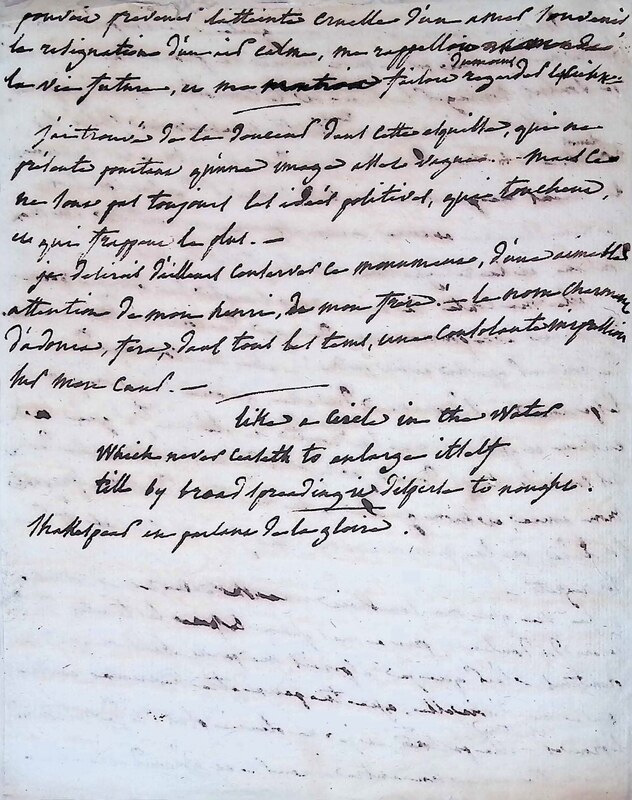 pouvoir prevenir l'atteinte cruelle d'un amer souvenir,
la resignation d'un air calme, me rappelloit
la vie future, et me faisoit regarder
j'ai trouvé de la douceur dans cette esquisse, qui ne
présente pourtant qu'une image assez vague. — Mais ce
ne sont pas toujours les idées positives, qui touchent,
et qui frappent le plus. —
je desirois d'ailleurs conserver ce monument, d'une aimable
attention de mon henri, de mon frere! — le nom charmant
d'adonis, fera, dans tous les tems, une consolante impression
sur mon cœur. —
like a Circle in the Water
Which never ceaseth to enlarge itself
till by broad spreading it disperse to nought.
Shakespear en parlant de la gloire.